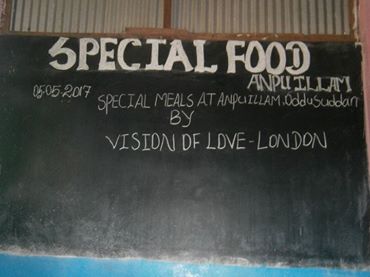 SPECIAL FOOD
ANPU ILLAM
05.05.2017
SPECIAL MEALS AT ANPU ILLAM. Oddusuddan
BY
VISION OF LOVE-LONDON